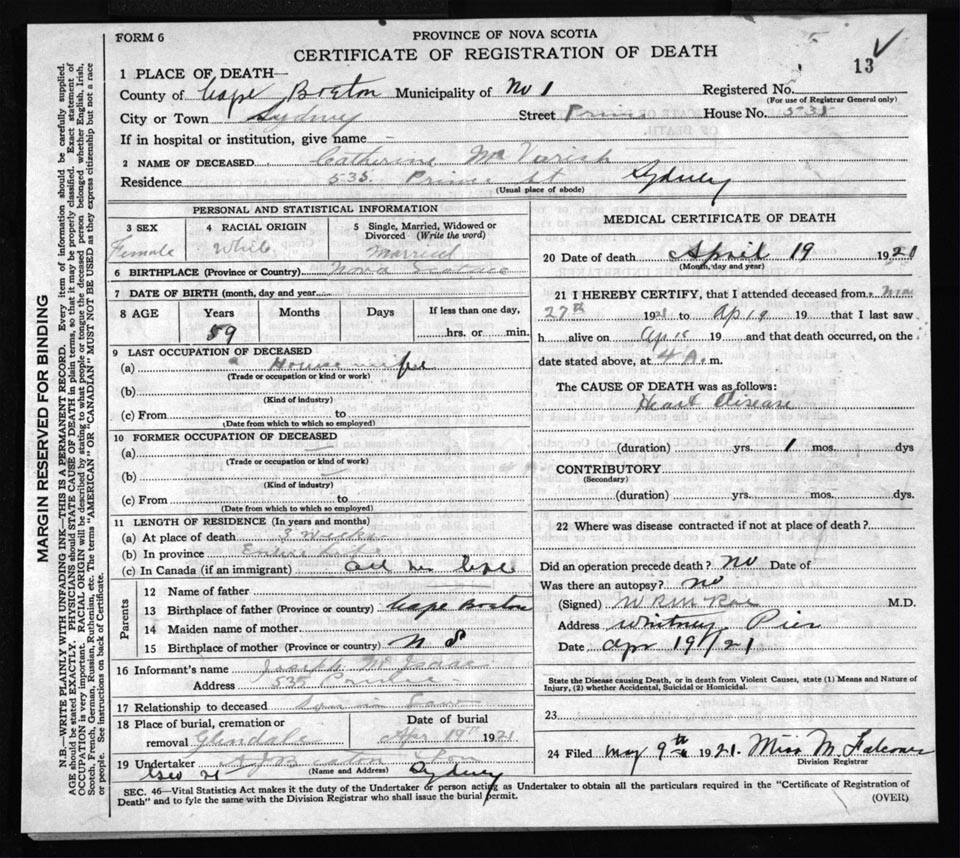 FORM 6
PROVINCE OF NOVA SCOTIA
CERTIFICATE OF REGISTRATION OF DEATH
13
1 PLACE OF DEATH—
County of Cape Breton Municipality of No 1 Registered No.
(For use of Registrar General only)
City or Town Sydney Street Prince House No. 535
If in hospital or institution, give name
2 NAME OF DECEASED Catherine Mc Varish
Residence 535 Prince St Sydney
(Usual place of abode)
PERSONAL AND STATISTICAL INFORMATION
3 SEX
Female
4 RACIAL ORIGIN
White
5 Single, Married, Widowed or Divorced (Write the word)
Married
6 BIRTHPLACE (Province or Country) Nova Scotia
7 DATE OF BIRTH (month, day and year)
8 AGE Years Months Days If less than one day,
59 hrs. or min.
9 LAST OCCUPATION OF DECEASED
(a) Housewife
(Trade or occupation or kind or work)
(b)
(Kind of industry)
(c) From to
(Date from which to which so employed)
10 FORMER OCCUPATION OF DECEASED
(a)
(Trade or occupation or kind of work)
(b)
(Kind of industry)
(c) From to
(Date from which to which so employed)
11 LENGTH OF RESIDENCE (In years and months)
(a) At place of death 3 weeks
(b) In province Entire life
(c) In Canada (if an immigrant) all her life
Parents
12 Name of father
13 Birthplace of father (Province or country) Cape Breton
14 Maiden name of mother
15 Birthplace of mother (Province or country) N S
16 Informant's name Joseph Mc Isaac
Address 535 Prince
17 Relationship to deceased Son in Law
18 Place of burial, cremation or removal Glendale
Date of burial
Apr 19th 1921
19 Undertaker Beaton & Son
(Name and Address) Sydney
MEDICAL CERTIFICATE OF DEATH
20 Date of death April 19 192
(Month, day and year)
21 I HEREBY CERTIFY, that I attended deceased from
27th 1921 to Ap 19 19 that I last saw
h alive on Ap 19 and that death occurred, on the
date stated above, at 4 A. m.
The CAUSE OF DEATH was as follows:
Heart Disease
(duration) yrs. 1 mos. dys
CONTRIBUTORY
(Secondary)
(duration) yrs. mos. dys.
22 Where was disease contracted if not at place of death?
Did an operation precede death? No Date of
Was there an autopsy? no
(Signed) M.D.
Address Whitney Pier
Date Apr 19/21
State the Disease causing Death, or in death from Violent Causes, state (1) Means and Nature of
Injury, (2) whether Accidental, Suicidal or Homicidal.
23
24 Filed May 9th 1921. Miss M. Falconer
Division Registrar
SEC. 46—Vital Statistics Act makes it the duty of the Undertaker or person acting as Undertaker to obtain all the particulars required in the "Certificate of Registration of
Death" and to fyle the same with the Division Registrar who shall issue the burial permit.
(OVER)
MARGIN RESERVED FOR BINDING
N.B.—WRITE PLAINLY WITH UNFADING INK—THIS IS A PERMANENT RECORD. Every item of information should be carefully supplied.
AGE should be stated EXACTLY. PHYSICIANS should STATE CAUSE OF DEATH in plain terms, so that it may be properly classified. Exact statement of
OCCUPATION is very important. RACIAL ORIGIN will be described by stating to what people or tongue the deceased person belonged whether English, Irish,
Scotch, French, German, Russian, Ruthenian, etc. The terms "AMERICAN" OR "CANADIAN" MUST NOT BE USED as they express citizenship but not a race
or people. See instructions on back of Certificate.